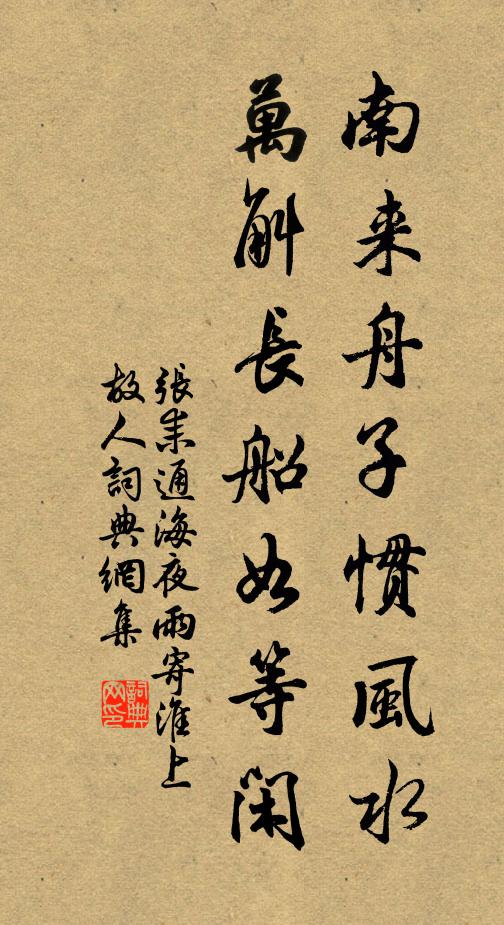 南来舟子慣風水
萬斛長船如等閑
張耒通海夜雨寄淮上
故人詞典網集
詞典网印